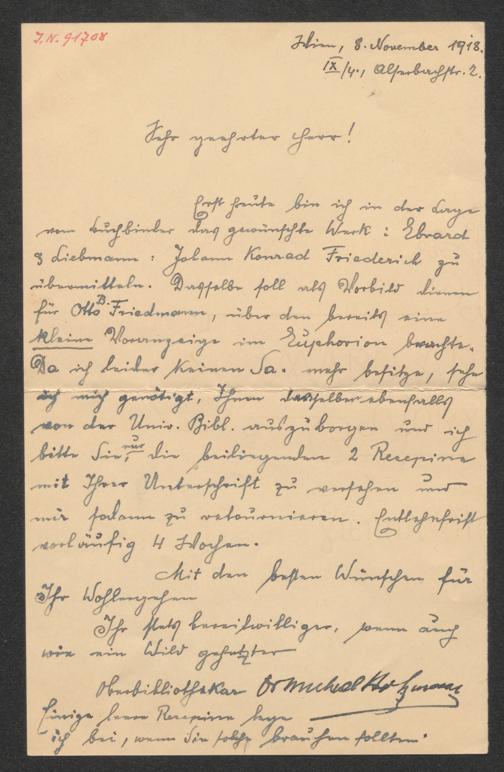 J.N. 91708
Wien, 8. November 1918.
IX/4., Alserbachstr. 2.
Sehr geehrter Herr!
Erst heute bin ich in der Lage
vom Buchbinder das gewünschte Werk: Ebrard
& Liebmann: Johann Konrad Friederich zu
übermitteln. Dasselbe soll als Vorbild dienen
für Otto B. Friedmann, über den bereits eine
kleine Voranzeige im Euphorion brachte.
Da ich leider keinen Sa. mehr besitze, sehe
ich mich genötigt, Ihnen dasselbe ebenfalls
von der Univ. Bibl. auszuborgen und ich
bitte Sie, nur die beiliegenden 2 Recepisse
mit Ihrer Unterschrift zu versehen und
mir sodann zu retournieren. Entlehnfrist
vorläufig 4 Wochen.
Mit den besten Wünschen für
Ihr Wohlergehen
Ihr stets bereitwilliger, wenn auch
wie ein Wild gehetzter
Oberbibliothekar Dr Michael Holzmann
Einige leere Recepisse lege
ich bei, wenn Sie solche brauchen sollten.